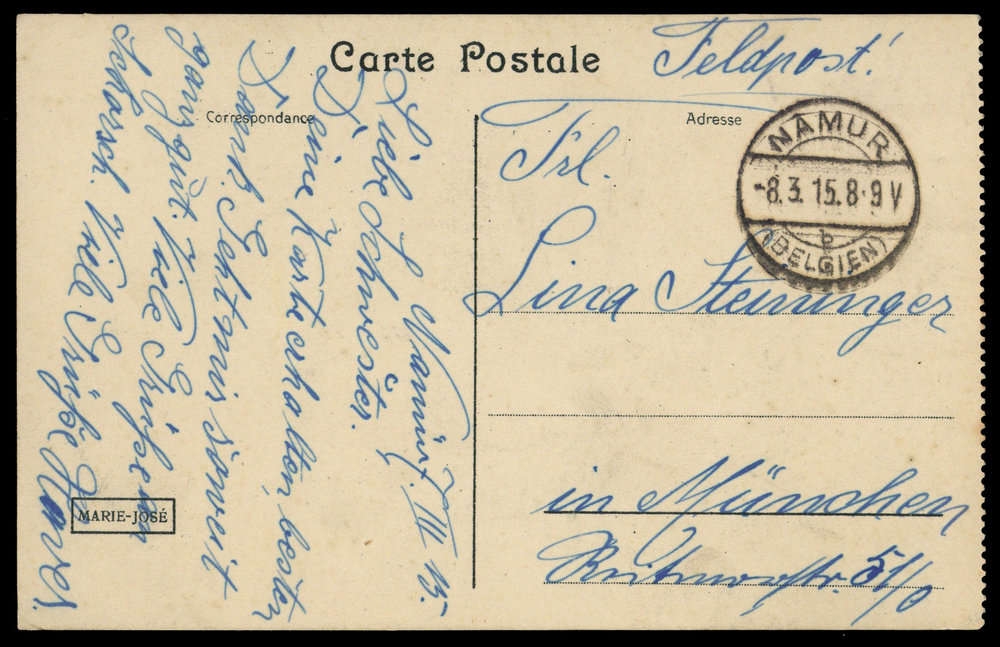 Carte Postale
Feldpost!
Correspondance
Adresse
NAMUR
-8.3.15.8-9V
b
(BELGIEN)
Frl.
Lina Steininger
in München
Reitmorstr. 51/0
Namur. 7 III 15.
Liebe Schwester.
Deine Karte erhalten, besten
Dank. Geht mir soweit
ganz gut. Viele Grüße an
Schorsch. Viele Grüße
MARIE-JOSÉ